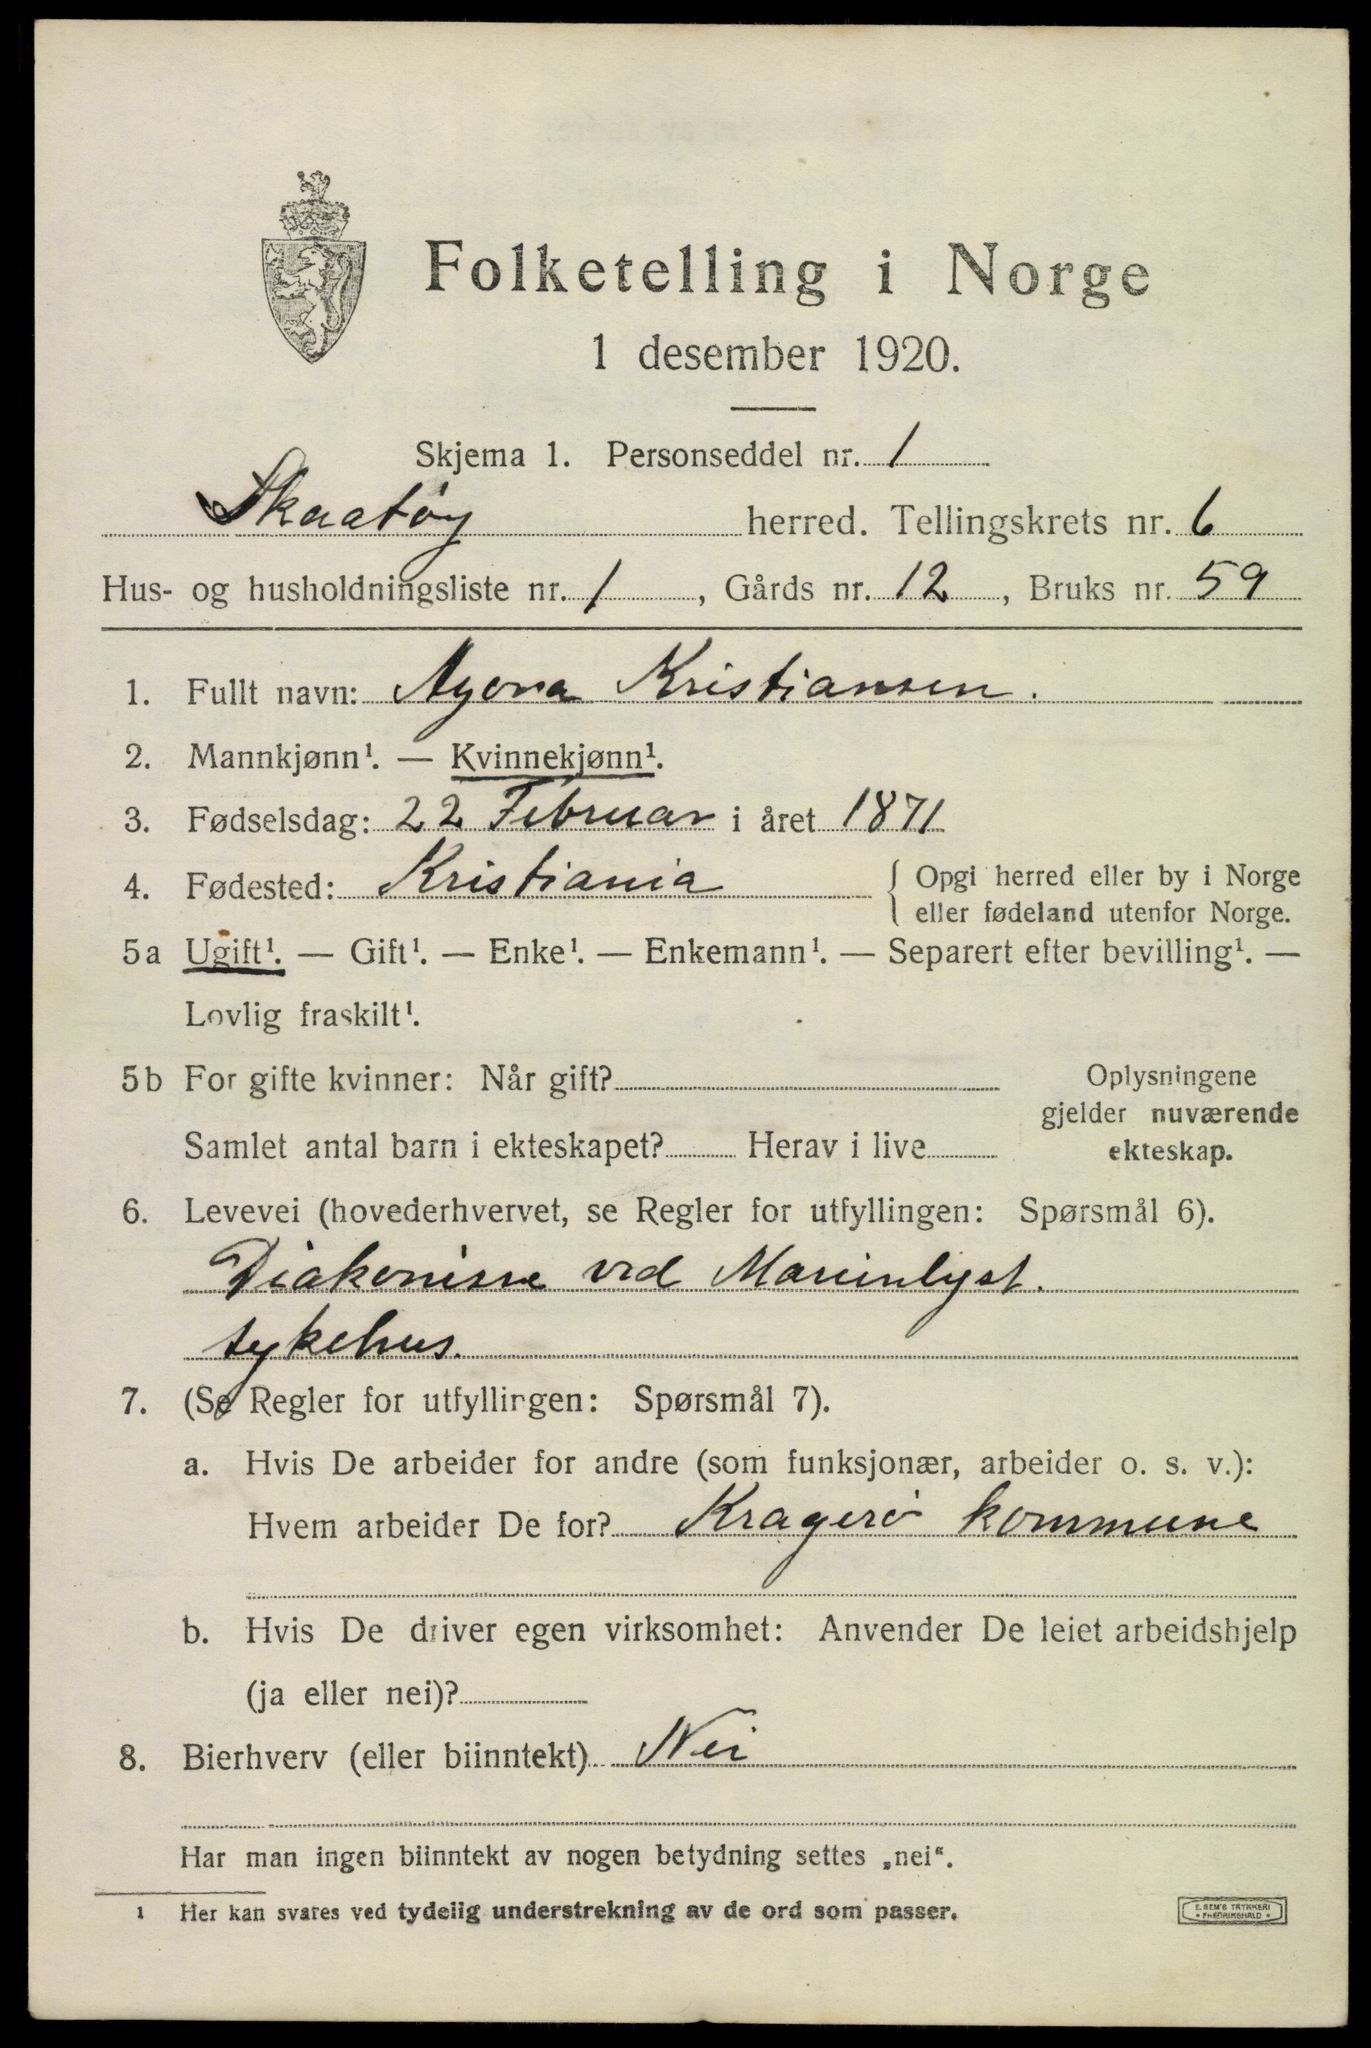 Folketelling i Norge
1 desember 1920.
Skjema 1. Personseddel nr. 1
Skaatøy herred. Tellingskrets nr. 6
Hus- og husholdningsliste nr. 1, Gårds nr. 12, Bruks nr. 59
1. Fullt navn: Kristiansen.
2. Mannkjønn¹. — Kvinnekjønn¹.
3. Fødselsdag: 22 Februar i året 1871
4. Fødested: Kristiania { Opgi herred eller by i Norge
eller fødeland utenfor Norge.
5a Ugift¹. — Gift¹. — Enke¹. — Enkemann¹. — Separert efter bevilling¹. —
Lovlig fraskilt¹.
5b For gifte kvinner: Når gift?
Samlet antal barn i ekteskapet? Herav i live
Oplysningene
gjelder nuværende
ekteskap.
6. Levevei (hovederhvervet, se Regler for utfyllingen: Spørsmål 6).
Diakonisse ved Marienlyst.
sykehus.
7. (Se Regler for utfyllingen: Spørsmål 7).
a. Hvis De arbeider for andre (som funksjonær, arbeider o. s. v.):
Hvem arbeider De for? Kragerö kommune
b. Hvis De driver egen virksomhet: Anvender De leiet arbeidshjelp
(ja eller nei)?
8. Bierhverv (eller biinntekt) Nei
Har man ingen biinntekt av nogen betydning settes „nei“.
1 Her kan svares ved tydelig understrekning av de ord som passer.
E. SEM'S TRYKKERI
• FREDRIKSHALD •